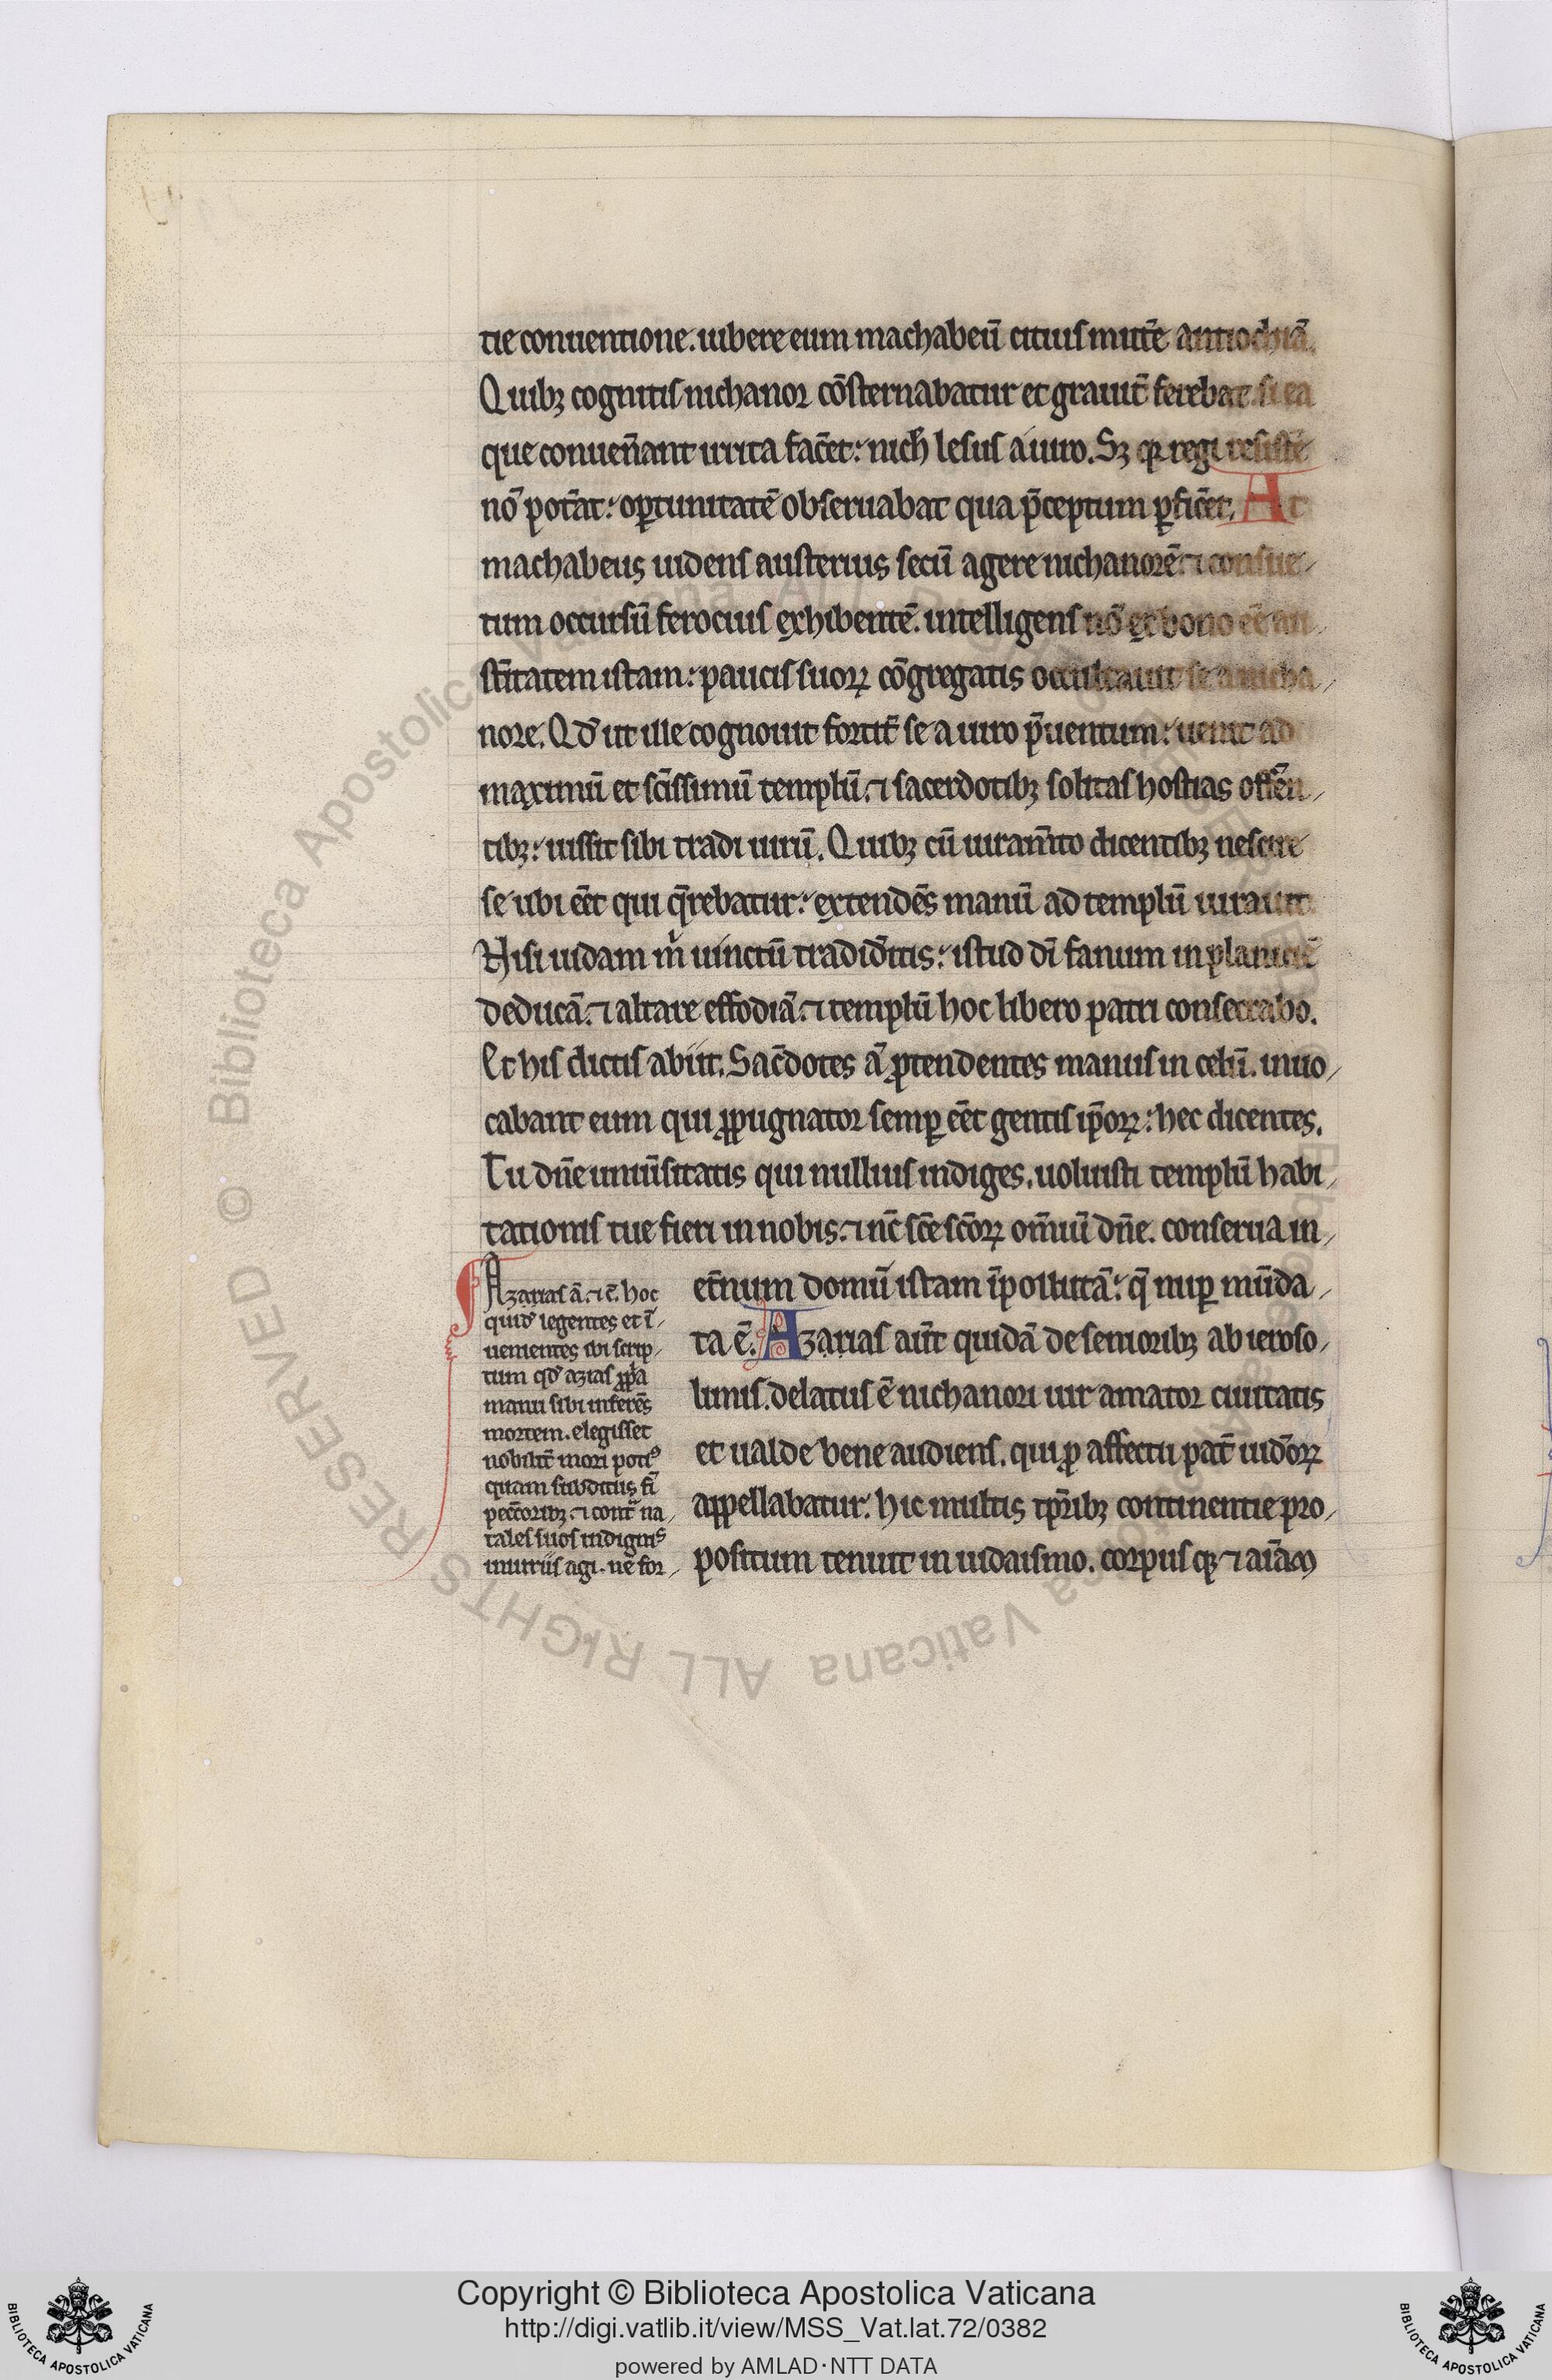 tie conuentione. iubere eum machabeū citius mitte᷒ antiochiā.
Quibꝫ cognitis nichanor cōsternabatur et grauit̄ ferebat. si ea
que conuen̄ant irrita fac̄et: nich̄ lesus a uiro. Sꝫ qꝛ regi resiste᷒
nō pot̄at: oꝑtunitatē obseruabat qua p̄ceptum ꝑfic̄et. At
machabeus uidens austerius secū agere nichanorē. ⁊ consue/
tum occursū ferocius exhibentē. intelligens nō ex bono ēē au/
st̄itatem istam: paucis suoꝝ cōgregatis occultauit se a nicha/
nore. Qd̄ ut ille cognouit fortit̄ se a uiro p̄uentum: uenit ad
maximū et sc̄issimū templū. ⁊ sacerdotibꝫ solitas hostias off̄en/
tibꝫ: iussit sibi tradi uirū. Quibꝫ cū iuram̄to dicentibꝫ nescire
se ubi ēēt qui q̄rebatur: extendēs manū ad templū iurauit
Nisi iudam m̍ uinctū tradid̄itis: istud dī fanum in planiciē
deducā. ⁊ altare effodiā. ⁊ templū hoc libero patri consecrabo.
Et his dictis abiit. Sac̄dotes ā ꝓtendentes manus in celū. inuo/
cabant eum qui ꝓpugnator semꝑ ēēt gentis ip̄oꝝ: hec dicentes.
Tu dn̄e uniūsitatis qui nullius indiges. uoluisti templū habi/
tationis tue fieri in nobis. ⁊ nc̄ sc̄e sc̄oꝝ om̄iū dn̄e. conserua in/
et̄num domū istam īpollutā: q̄ nuꝑ mūda/
ta ē. Azarias aūt quidā de senioribꝫ ab ieroso/
limis. delatus ē nichanori uir amator ciuitatis
et ualde bene audiens. qui ꝓ affectu pat̄ iud̄oꝝ
appellabatur. hic multis tp̄ribꝫ continentie pro/
positum tenuit in iudaismo. corpusqꝫ ⁊ aīam
Azarias ā. ⁊ c̄. hoc
quid̄ legentes et ī/
uenientes ibi scrip/
tum qd̄ azias ꝓp̍a
manu sibi inferēs
mortem. elegisset
nobilit̄ mori potiꝰ
quam subditus fi̍
pecc̄oribꝫ. ⁊ cont̄ na/
tales suos indignis
iniuriis agi. ne for/
Copyright © Biblioteca Apostolica Vaticana
http://digi.vatlib.it/view/MSS_Vat.lat.72/0382
powered by AMLAD·NTT DATA